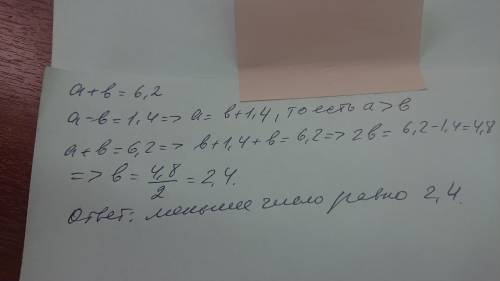 a + b = 6,2
a - b = 1,4 => a = b + 1,4, то есть a > b
a + b = 6,2 => b + 1,4 + b = 6,2 => 2b = 6,2 - 1,4 = 4,8
=> b = 4,8/2 = 2,4.
Ответ: меньшее число равно 2,4.